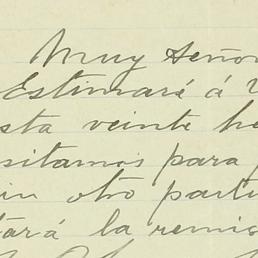 Muy Señor
Estimaré á V
sta veinte he
sitamos para
in otro parti
tará la remis